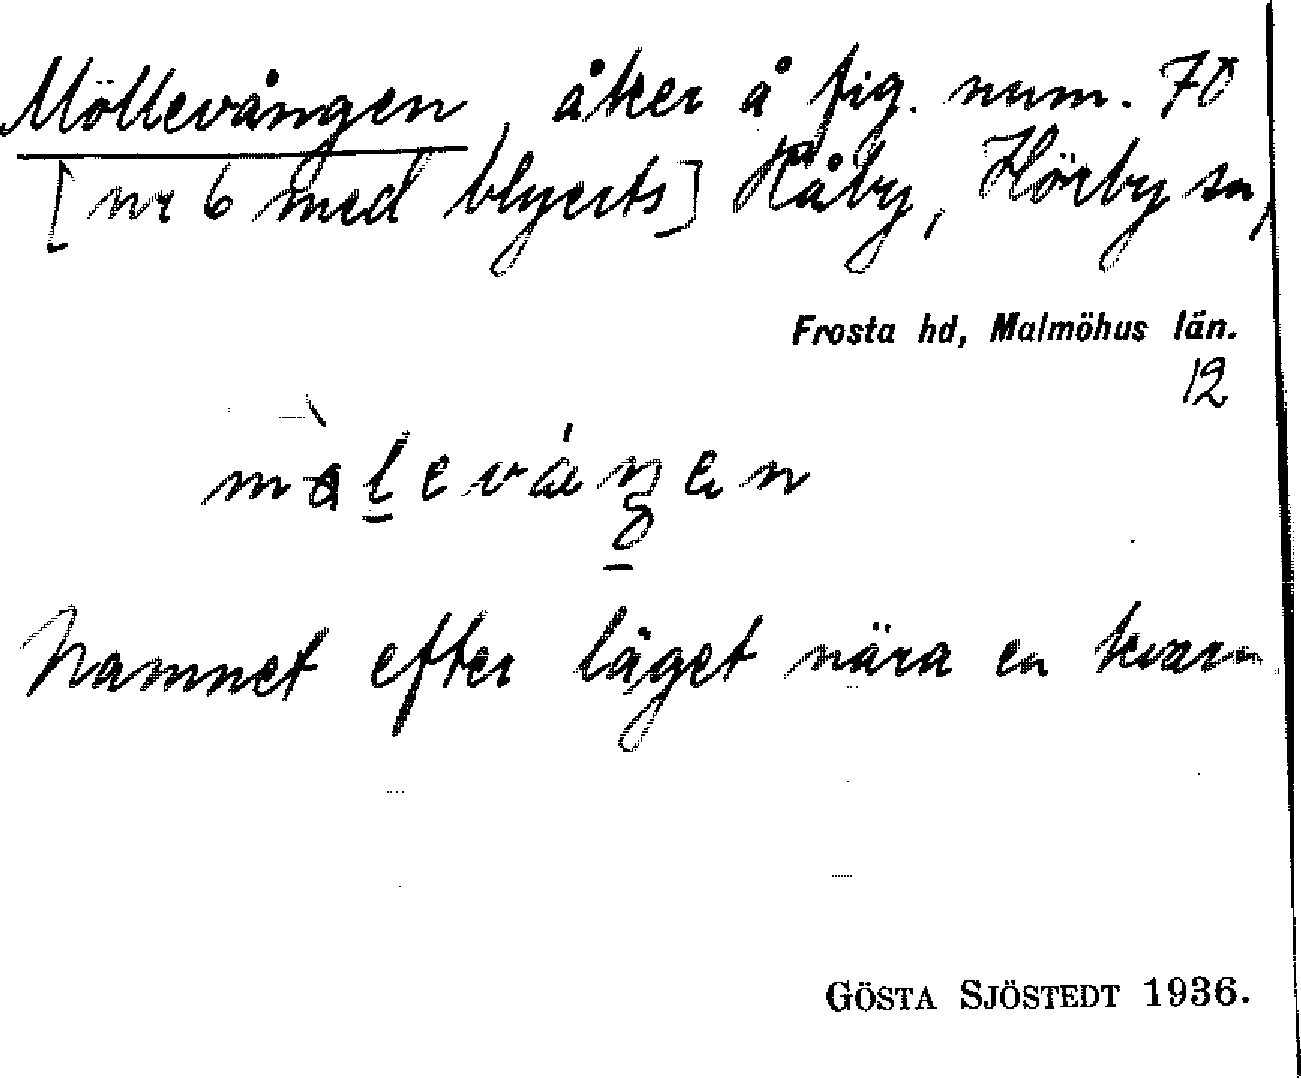 Möllevången, åker å fig. num. 70
[nr 6 med blyerts] Håby, Hörby sn,
Frosta hd, Malmöhus län.
12
Namnet efter läget nära en kvarn
GÖSTA SJÖSTEDT 1936.